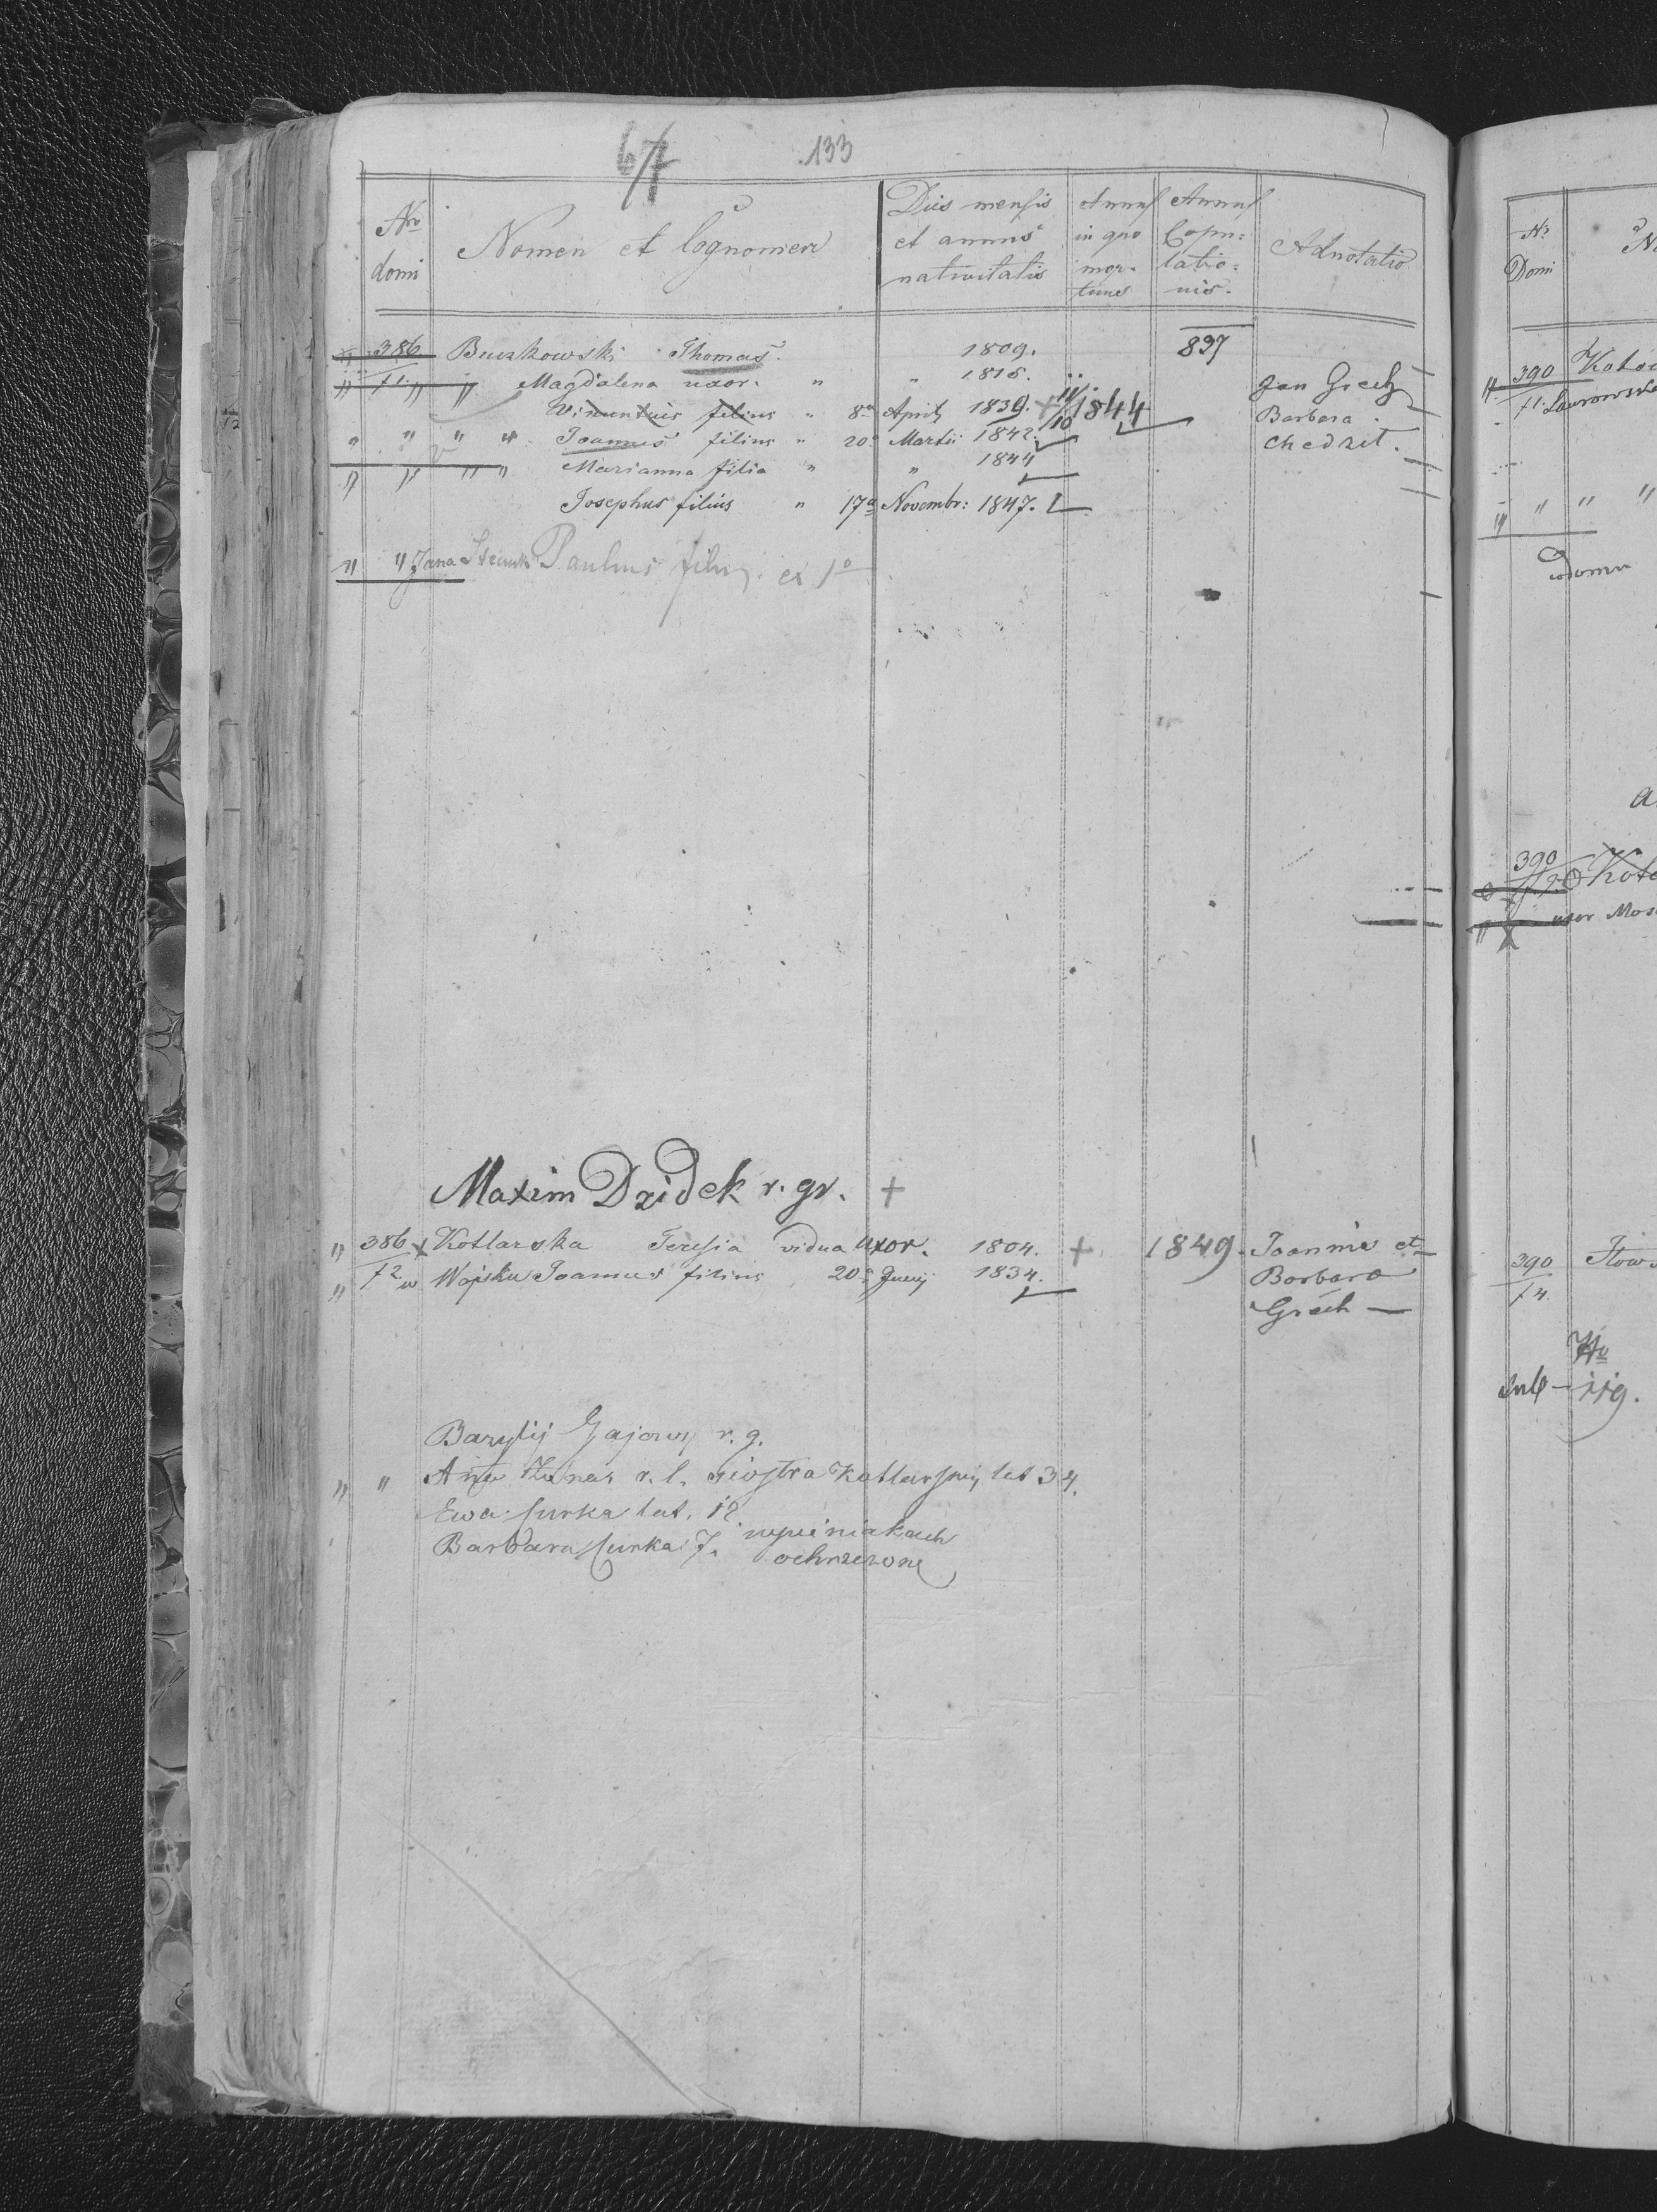 67 133
Nro domi
Nomen et Cognomen
Dies mensis et annus nativitatis
Annus in quo mortuus
Annus Copulationis.
Adnotatio
386 Buczkowski Thomas. 1809. 837
f1. " Magdalena uxor. " " 1818. Jan Grech
Vincentius filius " 8a Aprilis 1839. + 1844 Barbara
" " " " Joannes filius " 20a Martii 1842. Chedzit.
" " " " Marianna filia " " 1844
Josephus filius " 17a Novembr: 1847.
" " Jana Paulus filius ex 1o
Maxim Dzidek r. gr. +
" 386 x Kotlarska Teresia vidua uxor. 1804. + 1849. Joannis et
" f2 w Wojsku Joannes filius 20a Junij 1834. Barbara
Grech —
Bazylij Gajowy r. g.
" " Anna r. l. siostra Kotlarskiej lat 34.
Ewa curka lat. 12
Barbara curka 7.
ochrzczone
No Domi
390
f1. Laurowska
" " "
390
uxor
390
f4.
119.